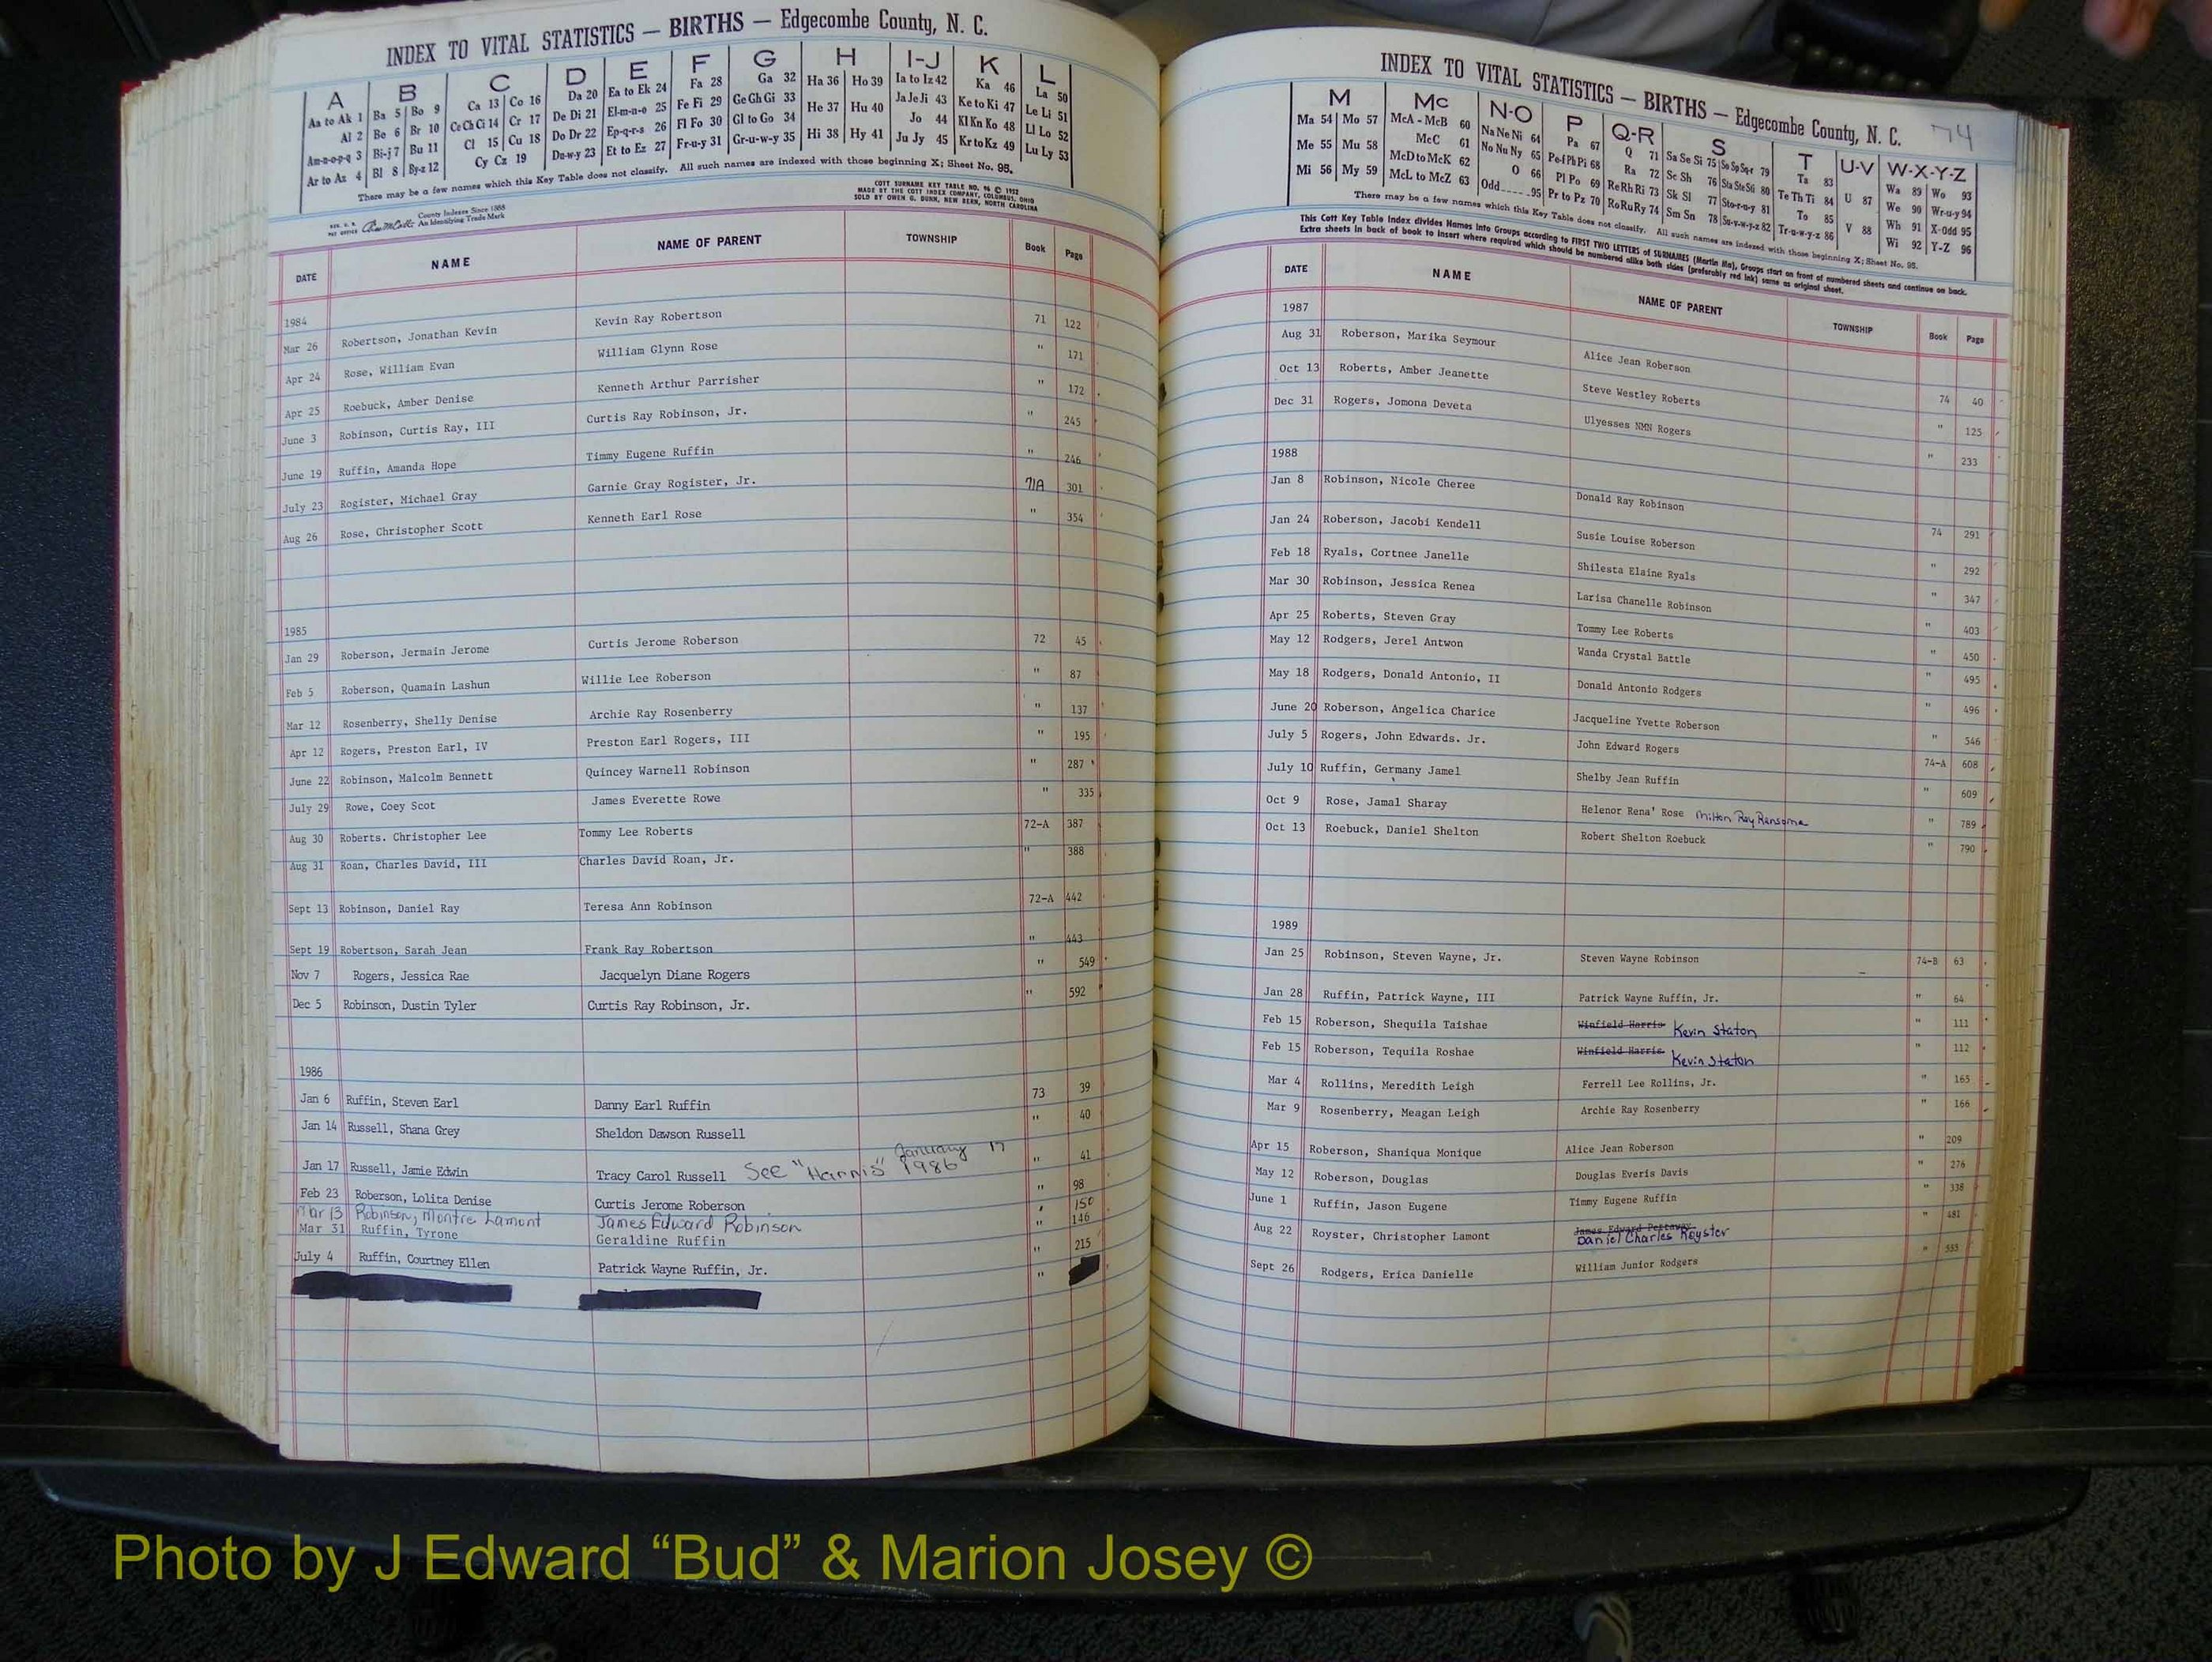 INDEX TO VITAL STATISTICS — BIRTHS — Edgecombe County, N. C.
A B C D E F G H I-J K L
Aa to Ak 1 Ba 5 Bo 9 Ca 13 Co 16 Da 20 Ea to Ek 24 Fa 28 Ga 32 Ha 36 Ho 39 Ia to Iz 42 Ka 46 La 50
Al 2 Be 6 Br 10 Ce Ch Ci 14 Cr 17 De Di 21 El-m-n-o 25 Fe Fi 29 Ge Gh Gi 33 He 37 Hu 40 Ja Je Ji 43 Ke to Ki 47 Le Li 51
Am-n-o-p-q 3 Bi-j 7 Bu 11 Cl 15 Cu 18 Do Dr 22 Ep-q-r-s 26 Fl Fo 30 Gl to Go 34 Hi 38 Hy 41 Jo 44 Kl Kn Ko 48 Ll Lo 52
Ar to Az 4 Bl 8 By-z 12 Cy Cz 19 Du-w-y 23 Et to Ez 27 Fr-u-y 31 Gr-u-w-y 35 Ju Jy 45 Kr to Kz 49 Lu Ly 53
There may be a few names which this Key Table does not classify. All such names are indexed with those beginning X; Sheet No. 95.
COTT SURNAME KEY TABLE NO. 96 © 1952
MADE BY THE COTT INDEX COMPANY, COLUMBUS, OHIO
SOLD BY OWEN G. DUNN, NEW BERN, NORTH CAROLINA
County Indexes Since 1888
An Identifying Trade Mark
DATE NAME NAME OF PARENT TOWNSHIP Book Page
1984
Mar 26 Robertson, Jonathan Kevin Kevin Ray Robertson 71 122
Apr 24 Rose, William Evan William Glynn Rose " 171
Apr 25 Roebuck, Amber Denise Kenneth Arthur Parrisher " 172
June 3 Robinson, Curtis Ray, III Curtis Ray Robinson, Jr. " 245
June 19 Ruffin, Amanda Hope Timmy Eugene Ruffin " 246
July 23 Rogister, Michael Gray Garnie Gray Rogister, Jr. 71A 301
Aug 26 Rose, Christopher Scott Kenneth Earl Rose " 354
1985
Jan 29 Roberson, Jermain Jerome Curtis Jerome Roberson 72 45
Feb 5 Roberson, Quamain Lashun Willie Lee Roberson " 87
Mar 12 Rosenberry, Shelly Denise Archie Ray Rosenberry " 137
Apr 12 Rogers, Preston Earl, IV Preston Earl Rogers, III " 195
June 22 Robinson, Malcolm Bennett Quincey Warnell Robinson " 287
July 29 Rowe, Coey Scot James Everette Rowe " 335
Aug 30 Roberts. Christopher Lee Tommy Lee Roberts 72-A 387
Aug 31 Roan, Charles David, III Charles David Roan, Jr. " 388
Sept 13 Robinson, Daniel Ray Teresa Ann Robinson 72-A 442
Sept 19 Robertson, Sarah Jean Frank Ray Robertson " 443
Nov 7 Rogers, Jessica Rae Jacquelyn Diane Rogers " 549
Dec 5 Robinson, Dustin Tyler Curtis Ray Robinson, Jr. " 592
1986
Jan 6 Ruffin, Steven Earl Danny Earl Ruffin 73 39
Jan 14 Russell, Shana Grey Sheldon Dawson Russell " 40
Jan 17 Russell, Jamie Edwin Tracy Carol Russell See "Harris" January 17 1986 " 41
Feb 23 Roberson, Lolita Denise Curtis Jerome Roberson " 98
Mar 13 Robinson, Montre Lamont James Edward Robinson " 150
Mar 31 Ruffin, Tyrone Geraldine Ruffin " 146
July 4 Ruffin, Courtney Ellen Patrick Wayne Ruffin, Jr. " 215
"
INDEX TO VITAL STATISTICS — BIRTHS — Edgecombe County, N. C. 74
M Mc N-O P Q-R S T U-V W-X-Y-Z
Ma 54 Mo 57 McA - McB 60 Na Ne Ni 64 Pa 67 Q 71 Sa Se Si 75 So Sp Sq-r 79 Ta 83 U 87 Wa 89 Wo 93
Me 55 Mu 58 McC 61 No Nu Ny 65 Pe-f Ph Pi 68 Ra 72 Sc Sh 76 Sta Ste Sti 80 Te Th Ti 84 V 88 We 90 Wr-u-y 94
Mi 56 My 59 McD to McK 62 O 66 Pl Po 69 Re Rh Ri 73 Sk Sl 77 Sto-r-u-y 81 To 85 Wh 91 X-Odd 95
McL to McZ 63 Odd 95 Pr to Pz 70 Ro Ru Ry 74 Sm Sn 78 Su-v-w-y-z 82 Tr-u-w-y-z 86 Wi 92 Y-Z 96
There may be a few names which this Key Table does not classify. All such names are indexed with those beginning X; Sheet No. 95.
This Cott Key Table Index divides Names into Groups according to FIRST TWO LETTERS of SURNAMES (Martin Ma), Groups start on front of numbered sheets and continue on back.
Extra sheets in back of book to insert where required which should be numbered alike both sides (preferably red ink) same as original sheet.
DATE NAME NAME OF PARENT TOWNSHIP Book Page
1987
Aug 31 Roberson, Marika Seymour Alice Jean Roberson 74 40
Oct 13 Roberts, Amber Jeanette Steve Westley Roberts " 125
Dec 31 Rogers, Jomona Deveta Ulyesses NMN Rogers " 233
1988
Jan 8 Robinson, Nicole Cheree Donald Ray Robinson 74 291
Jan 24 Roberson, Jacobi Kendell Susie Louise Roberson " 292
Feb 18 Ryals, Cortnee Janelle Shilesta Elaine Ryals " 347
Mar 30 Robinson, Jessica Renea Larisa Chanelle Robinson " 403
Apr 25 Roberts, Steven Gray Tommy Lee Roberts " 450
May 12 Rodgers, Jerel Antwon Wanda Crystal Battle " 495
May 18 Rodgers, Donald Antonio, II Donald Antonio Rodgers " 496
June 20 Roberson, Angelica Charice Jacqueline Yvette Roberson " 546
July 5 Rogers, John Edwards. Jr. John Edward Rogers 74-A 608
July 10 Ruffin, Germany Jamel Shelby Jean Ruffin " 609
Oct 9 Rose, Jamal Sharay Helenor Rena' Rose Milton Ray Ransome " 789
Oct 13 Roebuck, Daniel Shelton Robert Shelton Roebuck " 790
1989
Jan 25 Robinson, Steven Wayne, Jr. Steven Wayne Robinson 74-B 63
Jan 28 Ruffin, Patrick Wayne, III Patrick Wayne Ruffin, Jr. " 64
Feb 15 Roberson, Shequila Taishae Winfield Harris Kevin Staton " 111
Feb 15 Roberson, Tequila Roshae Winfield Harris Kevin Staton " 112
Mar 4 Rollins, Meredith Leigh Ferrell Lee Rollins, Jr. " 165
Mar 9 Rosenberry, Meagan Leigh Archie Ray Rosenberry " 166
Apr 15 Roberson, Shaniqua Monique Alice Jean Roberson " 209
May 12 Roberson, Douglas Douglas Everis Davis " 276
June 1 Ruffin, Jason Eugene Timmy Eugene Ruffin " 338
Aug 22 Royster, Christopher Lamont James Edward Daniel Charles Royster " 481
Sept 26 Rodgers, Erica Danielle William Junior Rodgers " 553
Photo by J Edward “Bud” & Marion Josey ©